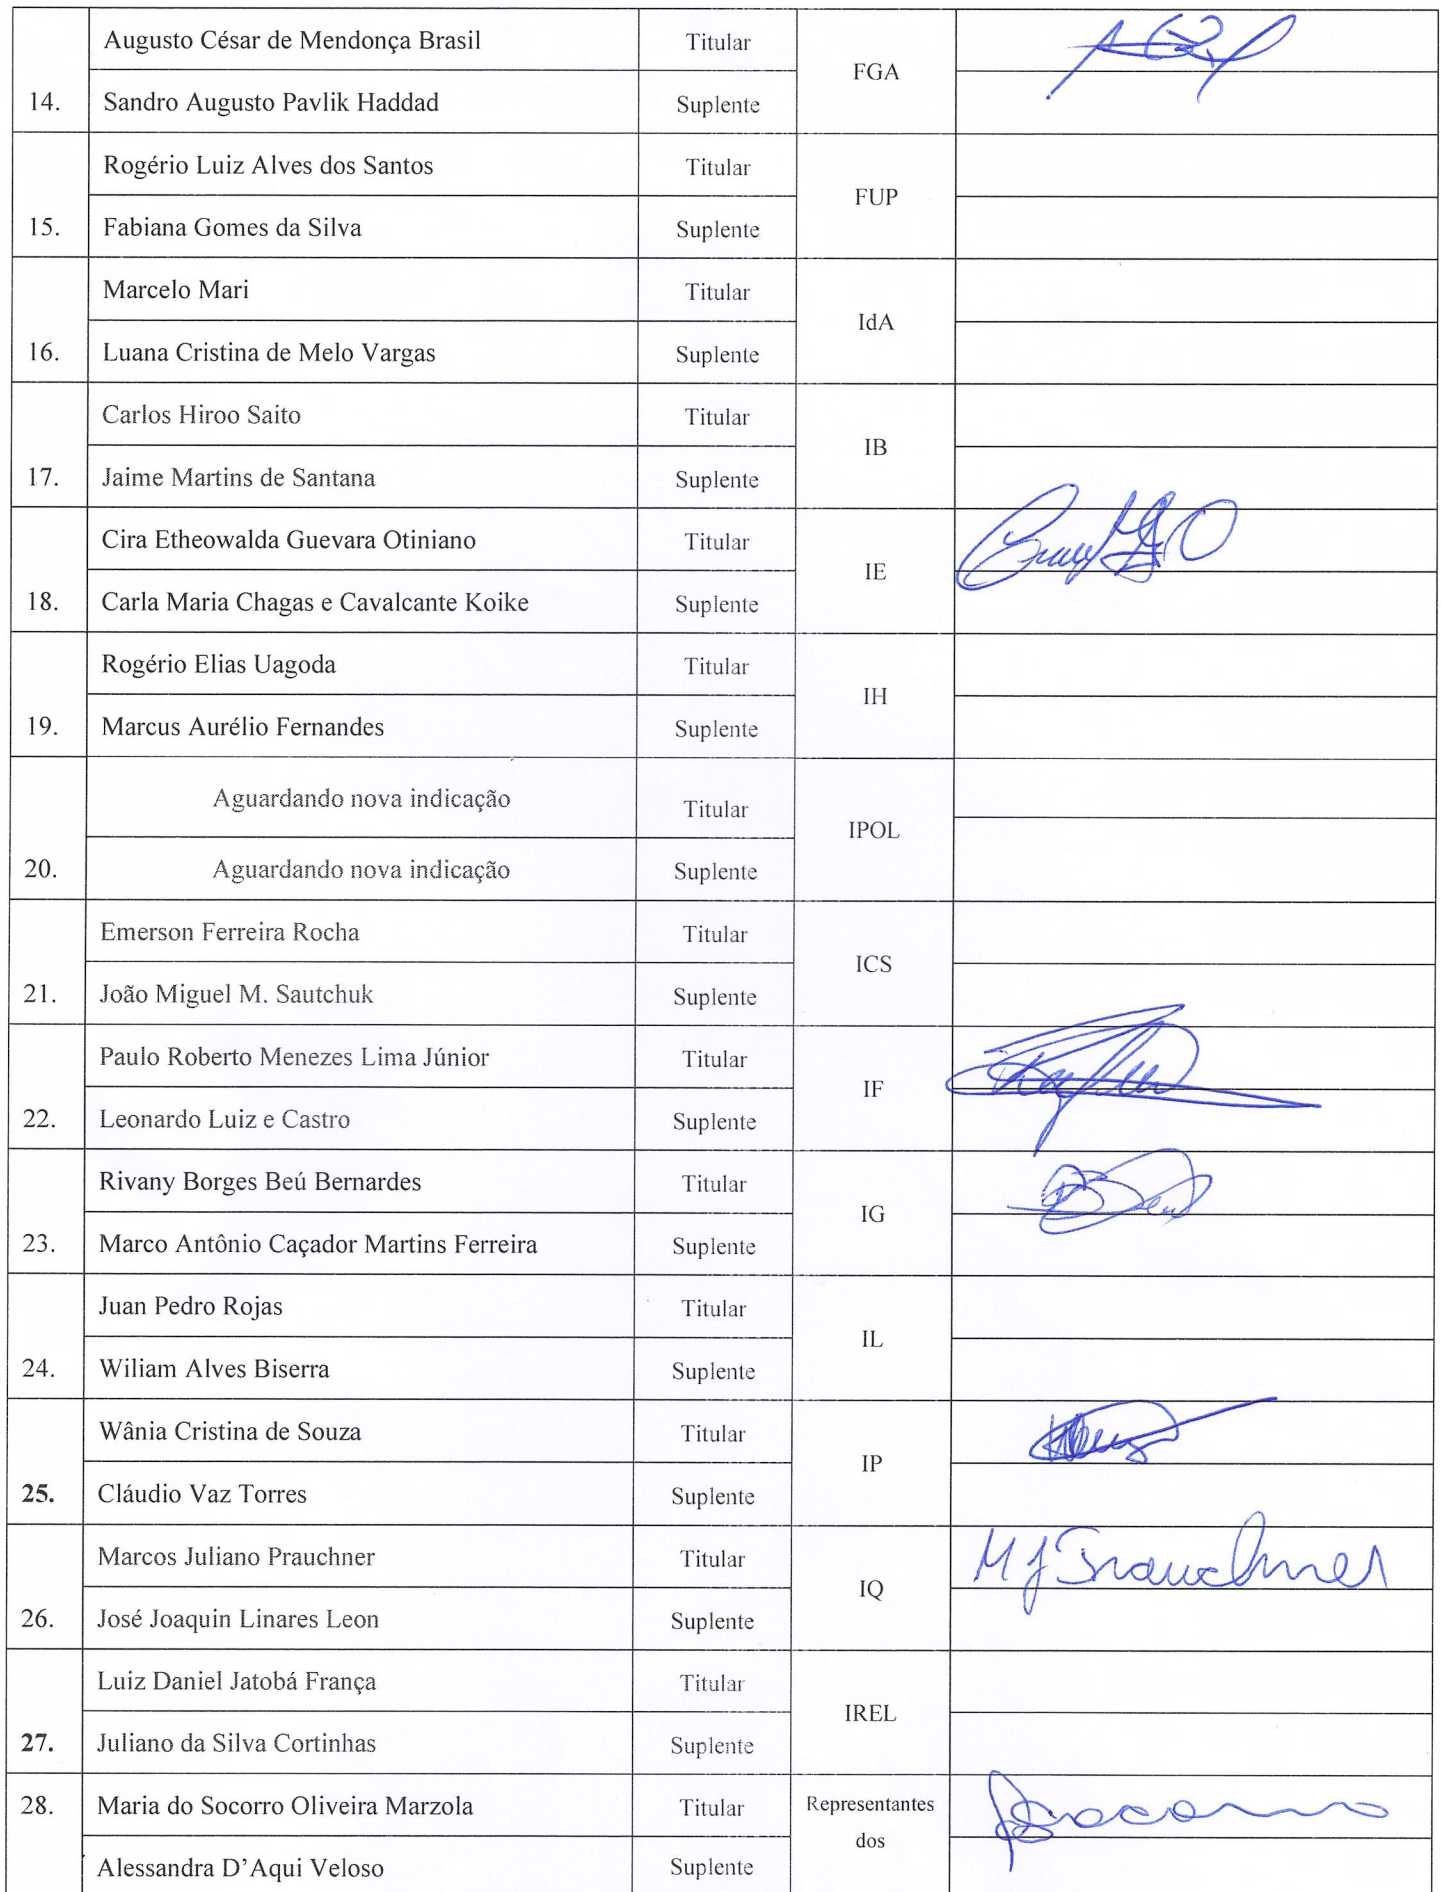 Augusto César de Mendonça Brasil Titular
FGA
14. Sandro Augusto Pavlik Haddad Suplente
Rogério Luiz Alves dos Santos Titular
FUP
15. Fabiana Gomes da Silva Suplente
Marcelo Mari Titular
IdA
16. Luana Cristina de Melo Vargas Suplente
Carlos Hiroo Saito Titular
IB
17. Jaime Martins de Santana Suplente
Cira Etheowalda Guevara Otiniano Titular
IE
18. Carla Maria Chagas e Cavalcante Koike Suplente
Rogério Elias Uagoda Titular
IH
19. Marcus Aurélio Fernandes Suplente
Aguardando nova indicação Titular
IPOL
20. Aguardando nova indicação Suplente
Emerson Ferreira Rocha Titular
ICS
21. João Miguel M. Sautchuk Suplente
Paulo Roberto Menezes Lima Júnior Titular
IF
22. Leonardo Luiz e Castro Suplente
Rivany Borges Beú Bernardes Titular
IG
23. Marco Antônio Caçador Martins Ferreira Suplente
Juan Pedro Rojas Titular
IL
24. Wiliam Alves Biserra Suplente
Wânia Cristina de Souza Titular
IP
25. Cláudio Vaz Torres Suplente
Marcos Juliano Prauchner Titular M J Prauchner
IQ
26. José Joaquin Linares Leon Suplente
Luiz Daniel Jatobá França Titular
IREL
27. Juliano da Silva Cortinhas Suplente
28. Maria do Socorro Oliveira Marzola Titular Representantes
dos
Alessandra D’Aqui Veloso Suplente